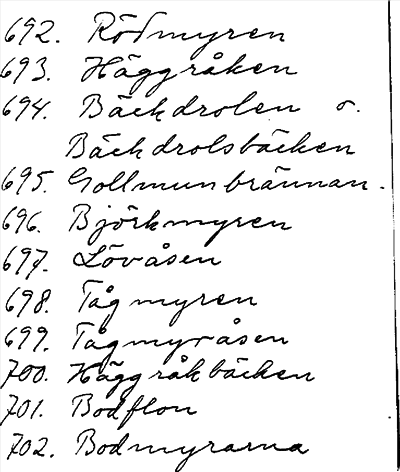 692. Rödmyren
693. Häggråken
694. Bäckdrolen o.
Bäckdrolsbäcken
695. Gollmunbrännan.
696. Björkmyren
697. Lövåsen
698. Tågmyren
699. Tågmyråsen
700. Häggråkbäcken
701. Bodflon
702. Bodmyrarna